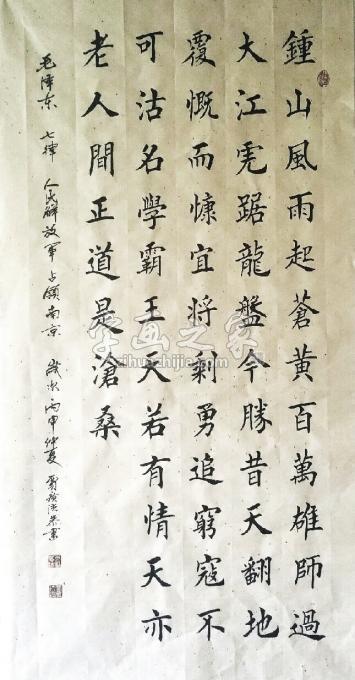 鍾山風雨起蒼黃百萬雄師過
大江虎踞龍盤今勝昔天翻地
覆慨而慷宜将剩勇追窮寇不
可沽名學霸王天若有情天亦
老人間正道是滄桑
毛泽东 七律 人民解放軍占領南京 歲次丙申仲夏
字画之家
zihuazhijia.com